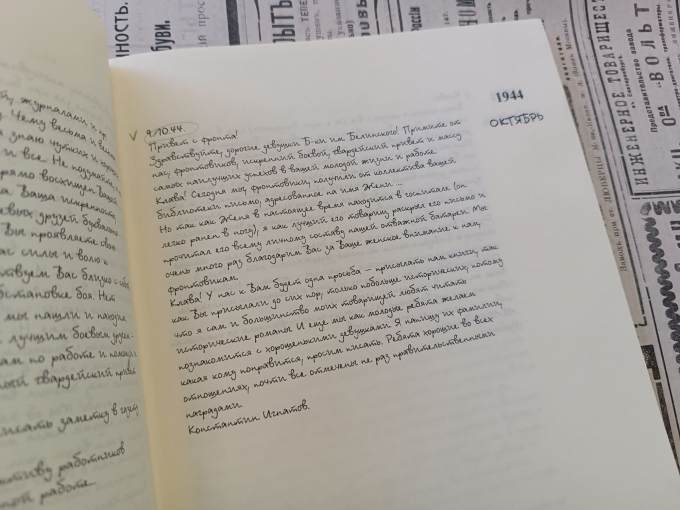 НОСТЬ.
БУВИ.
РЫТЬ
ИНЖЕНЕРНОЕ ТОВАРИЩЕС
Представительство завода
"ВОЛЬТ
1944
ОКТЯБРЬ
9.10.44
Привет с фронта!
Здравствуйте, дорогие девушки Б-ки им. Белинского! Примите от
нас, фронтовиков, искренний боевой, гвардейский привет и массу
самых наилучших успехов в вашей молодой жизни и работе.
Клава! Сегодня мы, фронтовики, получили от коллектива вашей
библиотеки письмо, адресованное на имя Жени ...
Но так как Женя в настоящее время находится в госпитале (он
легко ранен в ногу), я как лучший его товарищ раскрыл его письмо и
прочитал его всему личному составу нашей отважной батареи. Мы
очень много раз благодарим Вас за Ваше женское внимание к нам,
фронтовикам.
Клава! У нас к Вам будет одна просьба – присылать нам книги, так
как Вы присылали до сих пор, только побольше исторических, потому
что я сам и большинство моих товарищей любят читать
исторические романы. И еще мы как молодые ребята желаем
познакомится с хорошенькими девушками. Я напишу их фамилии,
какая кому понравится, просим писать. Ребята хорошие во всех
отношениях, почти все отмечены не раз правительственными
наградами.
Константин Игнатов.
журналами и
Чему весьма и
знаю чутких и
и все. Не
прямо восхищен Вашей
Ваша искренность
друзей
Вы проявляете свою
силы и волю к
Вас близко
обстановке боя. Нет
мы нашли и
лучшим боевым
по работе и
гвардейский привет
писать заметку в
работников
работе.